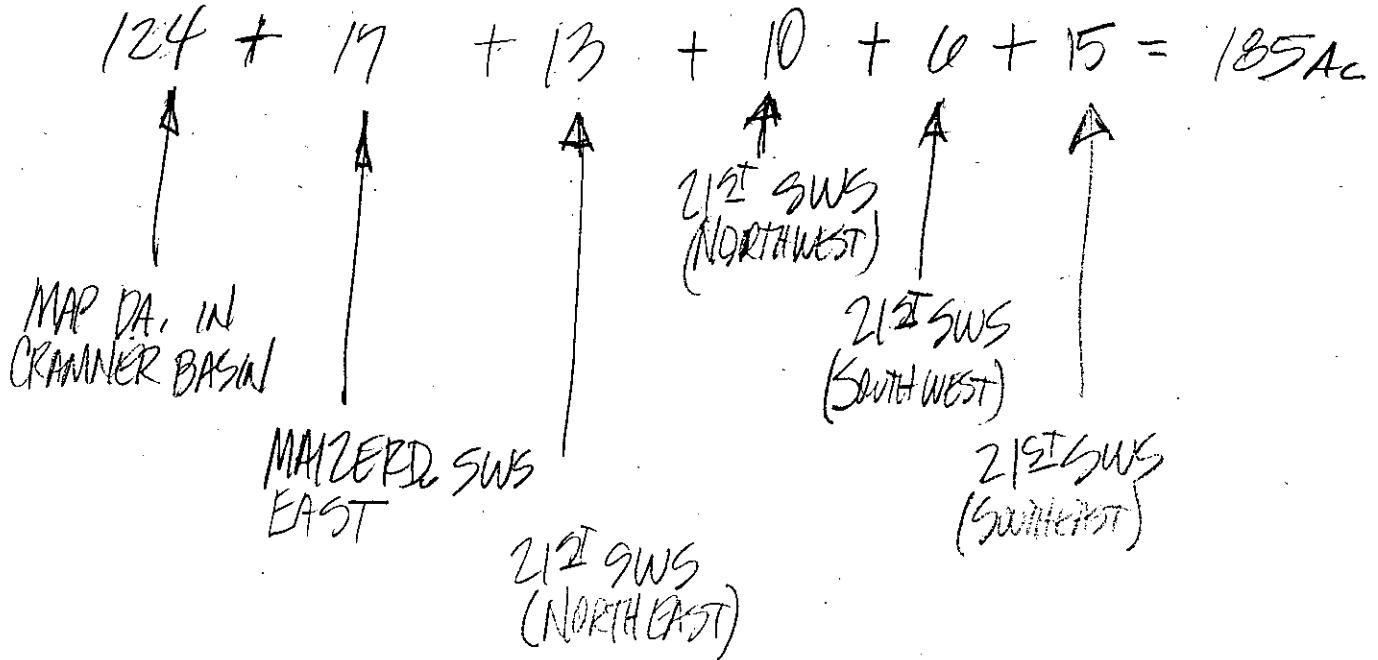 124 + 17 + 13 + 10 + 6 + 15 = 185 Ac
MAP DA. IN
CRAMNER BASIN
MAIZERD. SWS
EAST
21ST SWS
(NORTHEAST)
21ST SWS
(NORTHWEST)
21ST SWS
(SOUTHWEST)
21ST SWS
(SOUTHEAST)